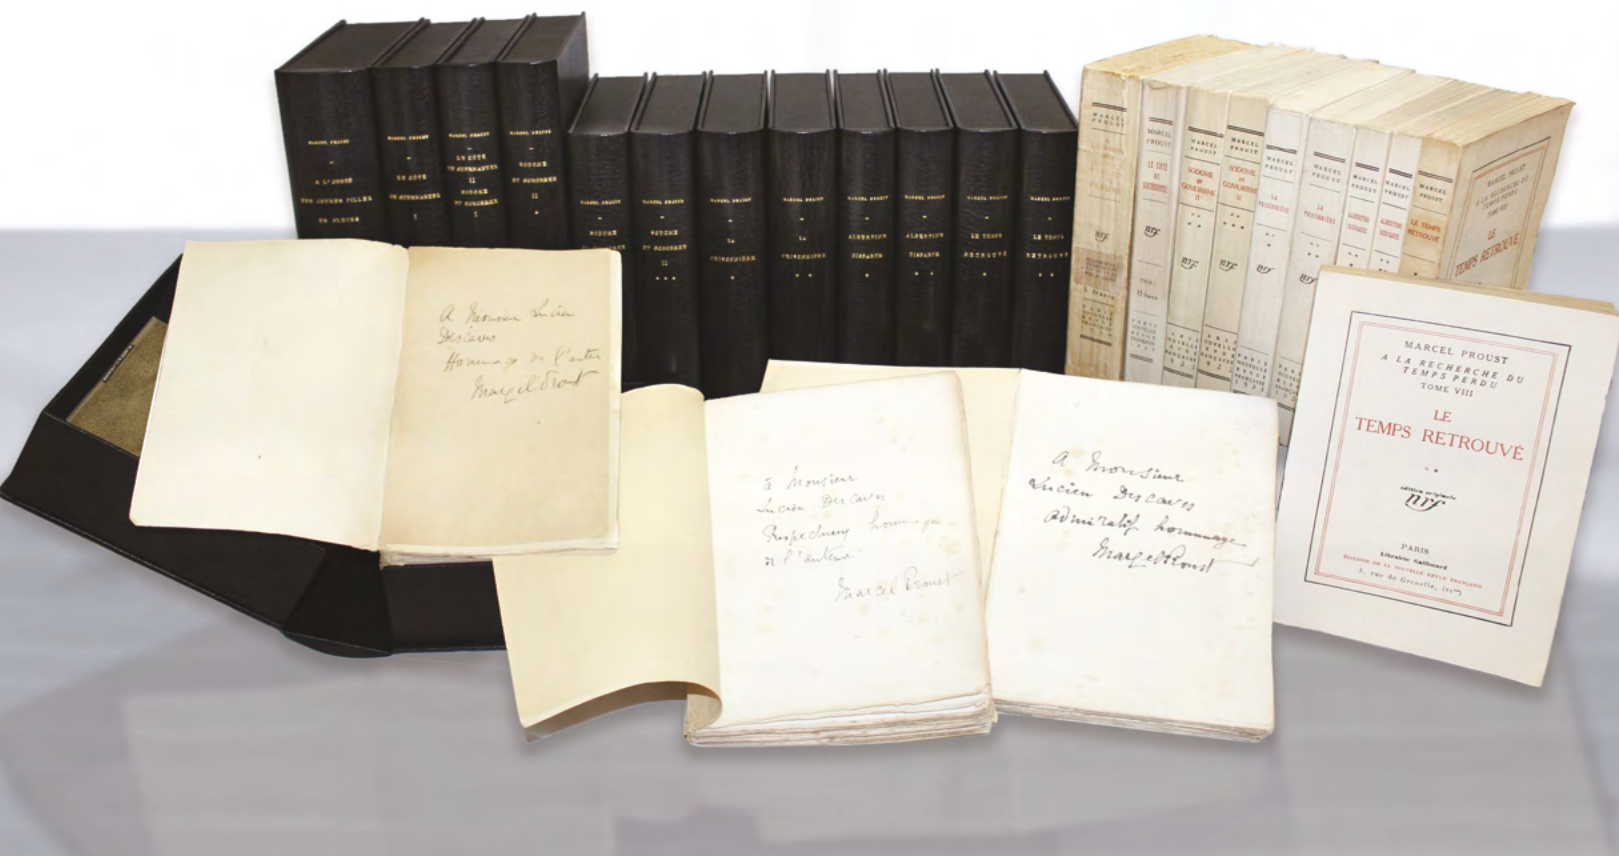 MARCEL PROUST
A L'OMBRE
DES JEUNES FILLES
EN FLEURS
MARCEL PROUST
LE CÔTÉ
DE GUERMANTES
I
MARCEL PROUST
LE CÔTÉ
DE GUERMANTES
II
SODOME
ET GOMORRHE
I
MARCEL PROUST
SODOME
ET GOMORRHE
II
*
MARCEL PROUST
SODOME
ET GOMORRHE
MARCEL PROUST
SODOME
ET GOMORRHE
II
* * *
MARCEL PROUST
LA
PRISONNIÈRE
*
MARCEL PROUST
LA
PRISONNIÈRE
* *
MARCEL PROUST
ALBERTINE
DISPARUE
*
MARCEL PROUST
ALBERTINE
DISPARUE
* *
MARCEL PROUST
LE TEMPS
RETROUVÉ
*
MARCEL PROUST
LE TEMPS
RETROUVÉ
* *
MARCEL
PROUST
nrf
MARCEL
PROUST
LE CÔTÉ
DE
GUERMANTES
nrf
MARCEL
PROUST
SODOME
ET
GOMORRHE
II
* *
nrf
MARCEL
PROUST
SODOME
ET
GOMORRHE
II
* * *
nrf
MARCEL
PROUST
LA
PRISONNIÈRE
*
nrf
MARCEL
PROUST
LA
PRISONNIÈRE
* *
nrf
MARCEL
PROUST
ALBERTINE
DISPARUE
MARCEL
PROUST
ALBERTINE
DISPARUE
MARCEL
PROUST
LE TEMPS
RETROUVÉ
MARCEL PROUST
A LA RECHERCHE DU
TEMPS PERDU
TOME VIII
LE
TEMPS RETROUVÉ
A Monsieur Lucien
Descaves
Hommage de l'auteur
Marcel Proust
à Monsieur
Lucien Descaves
Respectueux hommage
de l'auteur
Marcel Proust
A Monsieur
Lucien Descaves
Admiratif hommage
Marcel Proust
MARCEL PROUST
A LA RECHERCHE DU
TEMPS PERDU
TOME VIII
LE
TEMPS RETROUVÉ
* *
édition originale
nrf
PARIS
Librairie Gallimard
ÉDITIONS DE LA NOUVELLE REVUE FRANÇAISE
3, rue de Grenelle, (VIme)